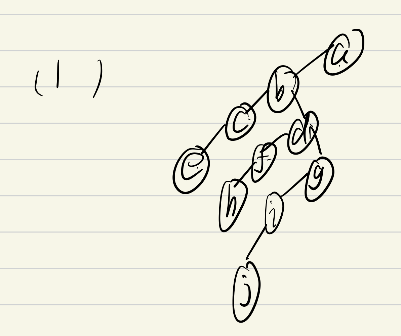 (1)
a
b
c d
e f g
h i
j